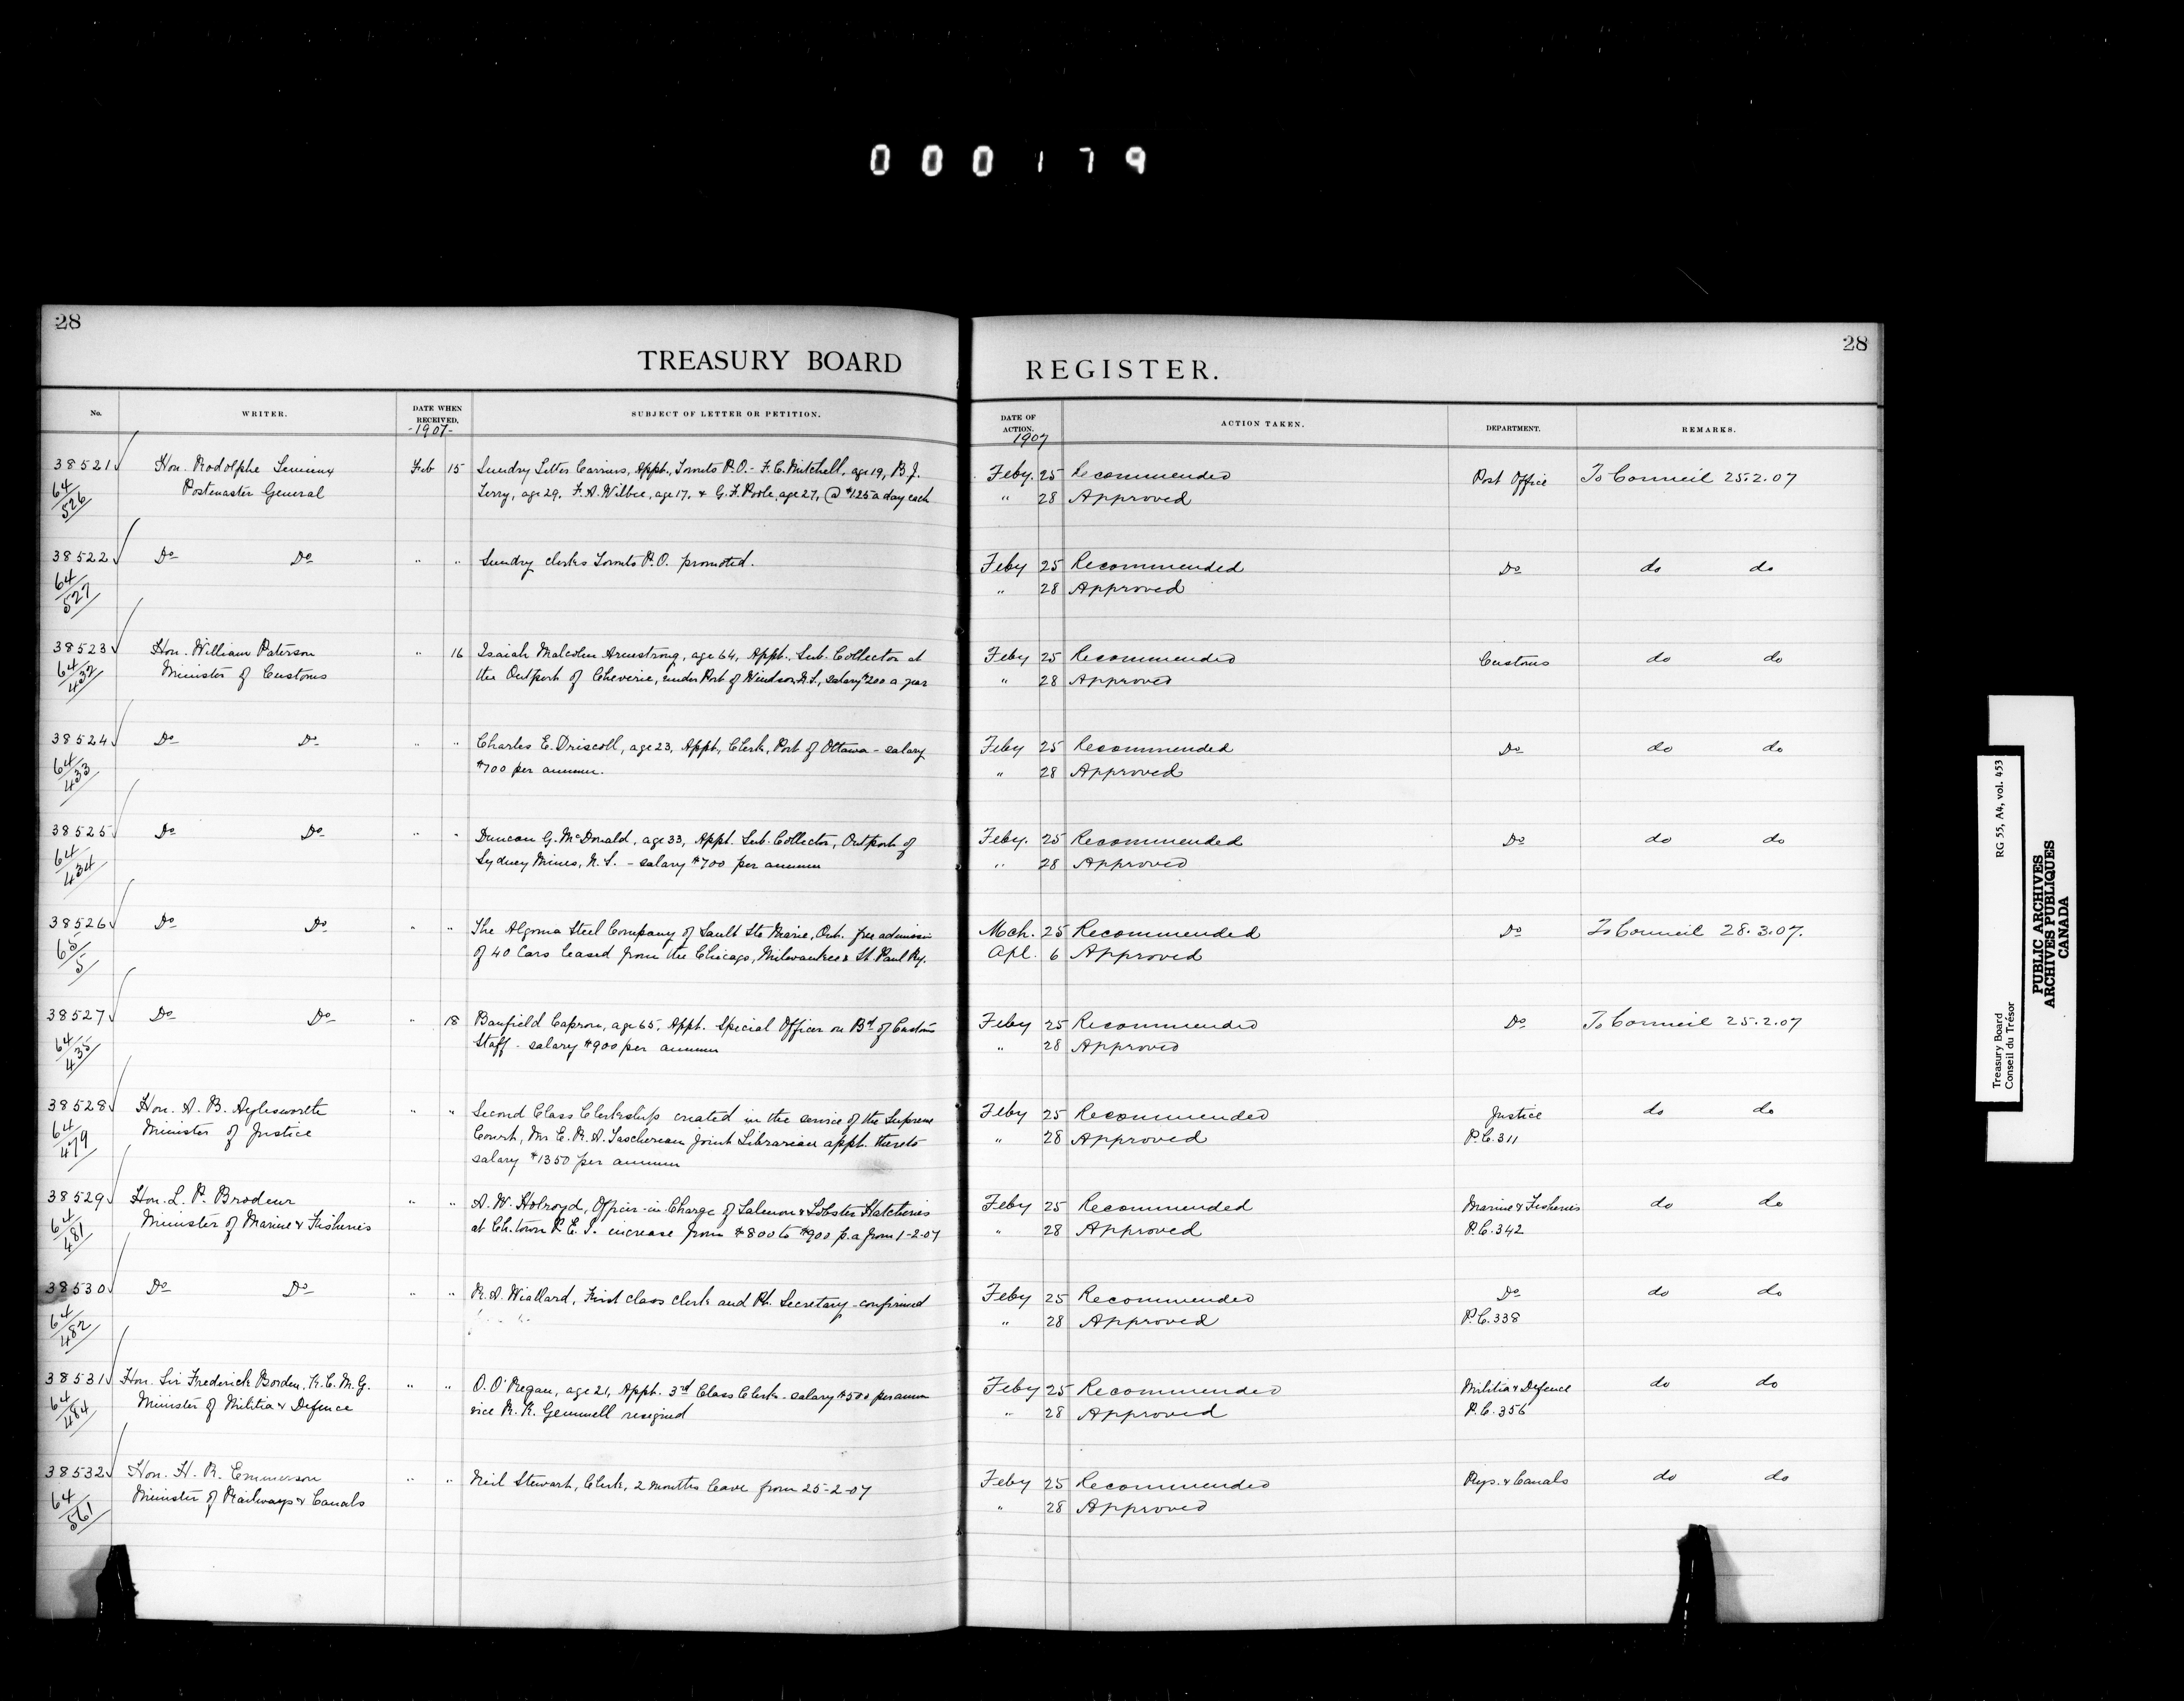 000179
28
28
TREASURY BOARD REGISTER.
No.
WRITER.
DATE WHEN RECEIVED.
-1907-
SUBJECT OF LETTER OR PETITION.
DATE OF ACTION.
1907
ACTION TAKEN.
DEPARTMENT.
REMARKS.
38521 Hon. Rodolphe Lemieux Feb 15 Sundry Letter Carriers, Appt., Toronto P.O. - F.C. Mitchell, age 19, B.J. Feby. 25 Recommended Post Office To Council 25.2.07
64/526 Postmaster General Terry, age 29, F.A. Wilbee, age 17, & G.F. Poole, age 27, @ $1.25 a day each " 28 Approved
38522 Do Do " " Sundry clerks Toronto P.O. promoted. Feby 25 Recommended Do do do
64/527 " 28 Approved
38523 Hon. William Paterson " 16 Isaiah Malcolm Armstrong, age 64, Appt. Sub. Collector at Feby 25 Recommended Customs do do
64/432 Minister of Customs the Outport of Cheverie, under Port of Windsor N.S., salary $200 a year " 28 Approved
38524 Do Do " " Charles E. Driscoll, age 23, Appt. Clerk, Port of Ottawa - salary Feby 25 Recommended Do do do
64/433 $700 per annum. " 28 Approved
38525 Do Do " " Duncan G. McDonald, age 33, Appt. Sub. Collector, Outport of Feby. 25 Recommended Do do do
64/434 Sydney Mines, N.S. - salary $700 per annum " 28 Approved
38526 Do Do " " The Algoma Steel Company of Sault Ste Marie, Ont. free admission Mch. 25 Recommended Do To Council 28.3.07.
65/5 of 40 Cars leased from the Chicago, Milwaukee & St. Paul Ry. Apl. 6 Approved
38527 Do Do " 18 Banfield Capron, age 65, Appt. Special Officer on Bd of Customs Feby 25 Recommended Do To Council 25.2.07
64/435 Staff - salary $900 per annum " 28 Approved
38528 Hon. A. B. Aylesworth " " Second Class Clerkship created in the service of the Supreme Feby 25 Recommended Justice do do
64/479 Minister of Justice Court, Mr E. R. A. Taschereau Joint Librarian appt. thereto " 28 Approved P.C. 311
salary $1350 per annum
38529 Hon. L. P. Brodeur " " A. W. Holroyd, Officer-in-Charge of Salmon & Lobster Hatcheries Feby 25 Recommended Marine & Fisheries do do
64/481 Minister of Marine & Fisheries at Ch.town P.E.I. increase from $800 to $900 p.a from 1-2-07 " 28 Approved P.C. 342
38530 Do Do " " R. A. Wiallard, First class clerk and Pt. Secretary - confirmed Feby 25 Recommended Do do do
64/482 " 28 Approved P.C. 338
38531 Hon. Sir Frederick Borden, K.C.M.G. " " O. O'Regan, age 21, Appt. 3rd Class Clerk - salary $500 per annum Feby 25 Recommended Militia & Defence do do
64/484 Minister of Militia & Defence vice R. R. Gemmell resigned " 28 Approved P.C. 356
38532 Hon. H. R. Emmerson " " Neil Stewart, Clerk, 2 months leave from 25-2-07 Feby 25 Recommended Rys. & Canals do do
64/561 Minister of Railways & Canals " 28 Approved
Treasury Board RG 55, A4, vol. 453
Conseil du Trésor
PUBLIC ARCHIVES
ARCHIVES PUBLIQUES
CANADA